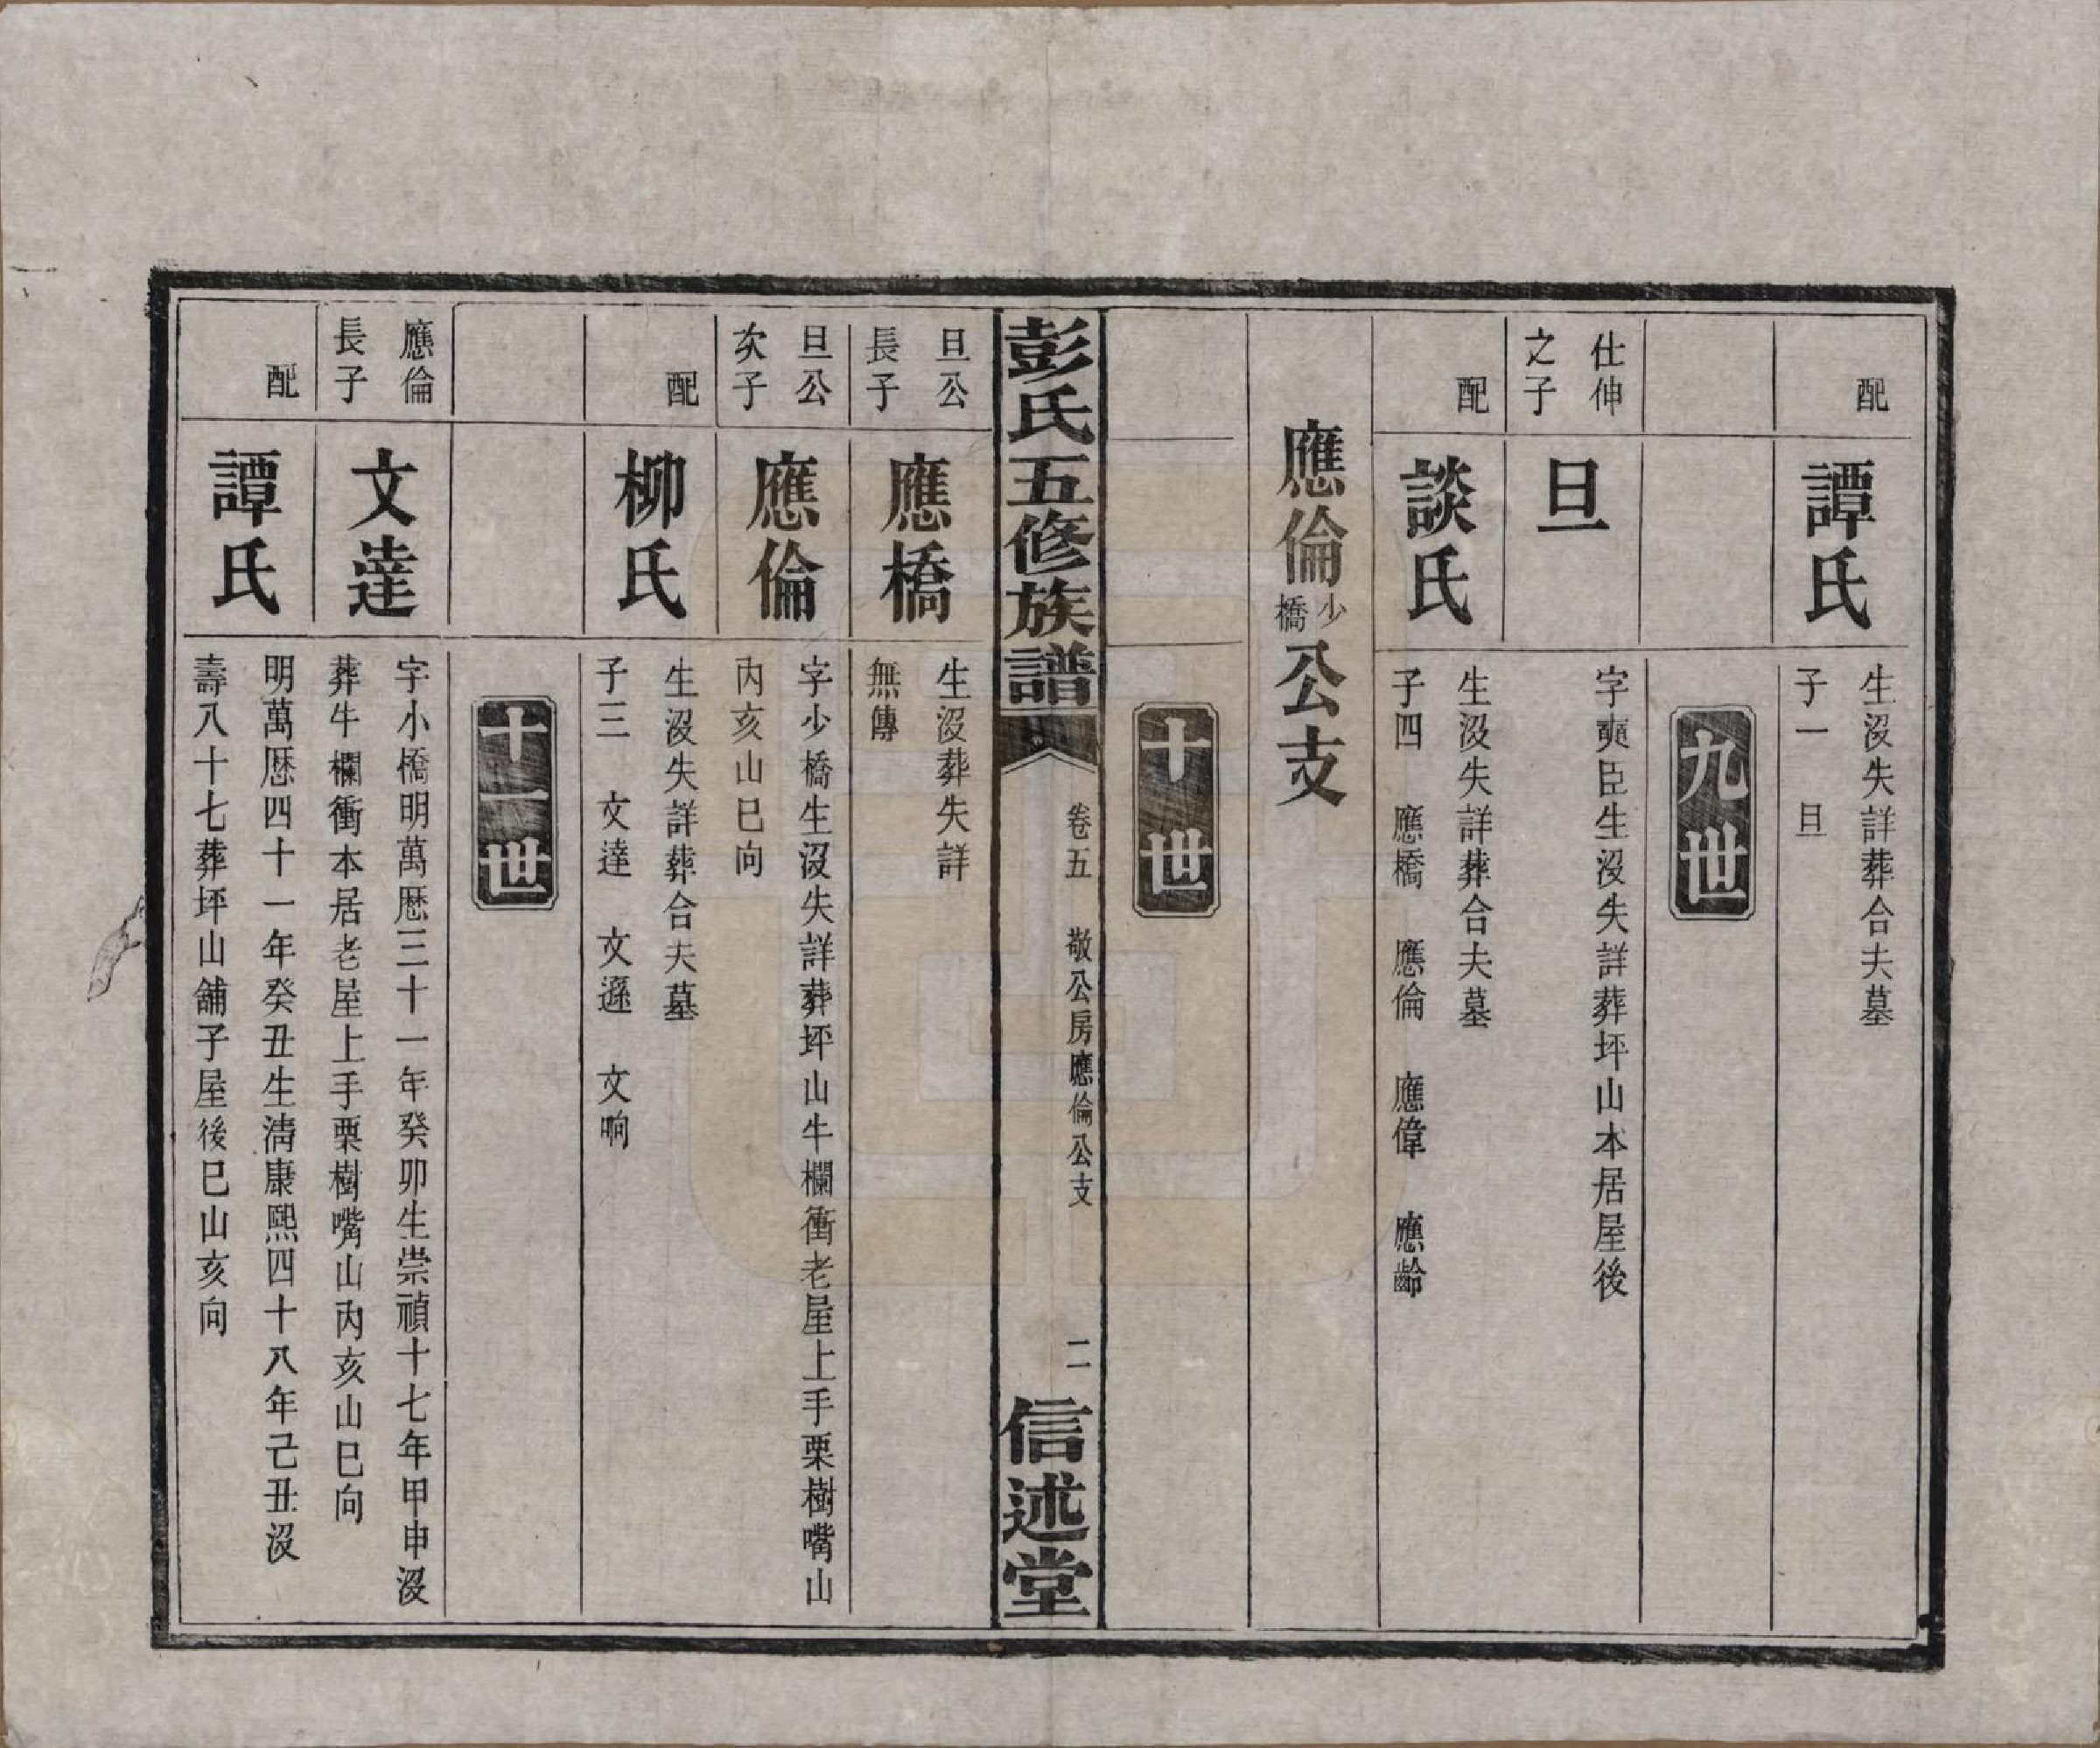 配
譚氏
生沒失詳葬合夫墓
子一　旦
九世
仕伸
之子
旦
字奭臣生沒失詳葬坪山本居屋後
配
談氏
生沒失詳葬合夫墓
子四　應橋　應倫　應偉　應齡
應倫少橋公支
十世
彭氏五修族譜
卷五　敬公房應倫公支
二
信述堂
旦公
長子
應橋
生沒葬失詳
無傳
旦公
次子
應倫
字少橋生沒失詳葬坪山牛欄衝老屋上手栗樹嘴山
丙亥山巳向
配
柳氏
生沒失詳葬合夫墓
子三　文達　文遜　文晌
十一世
應倫
長子
文達
字小橋明萬厯三十一年癸卯生崇禎十七年甲申沒
葬牛欄衝本居老屋上手栗樹嘴山丙亥山巳向
配
譚氏
明萬厯四十一年癸丑生清康熙四十八年己丑沒
壽八十七葬坪山舖子屋後巳山亥向